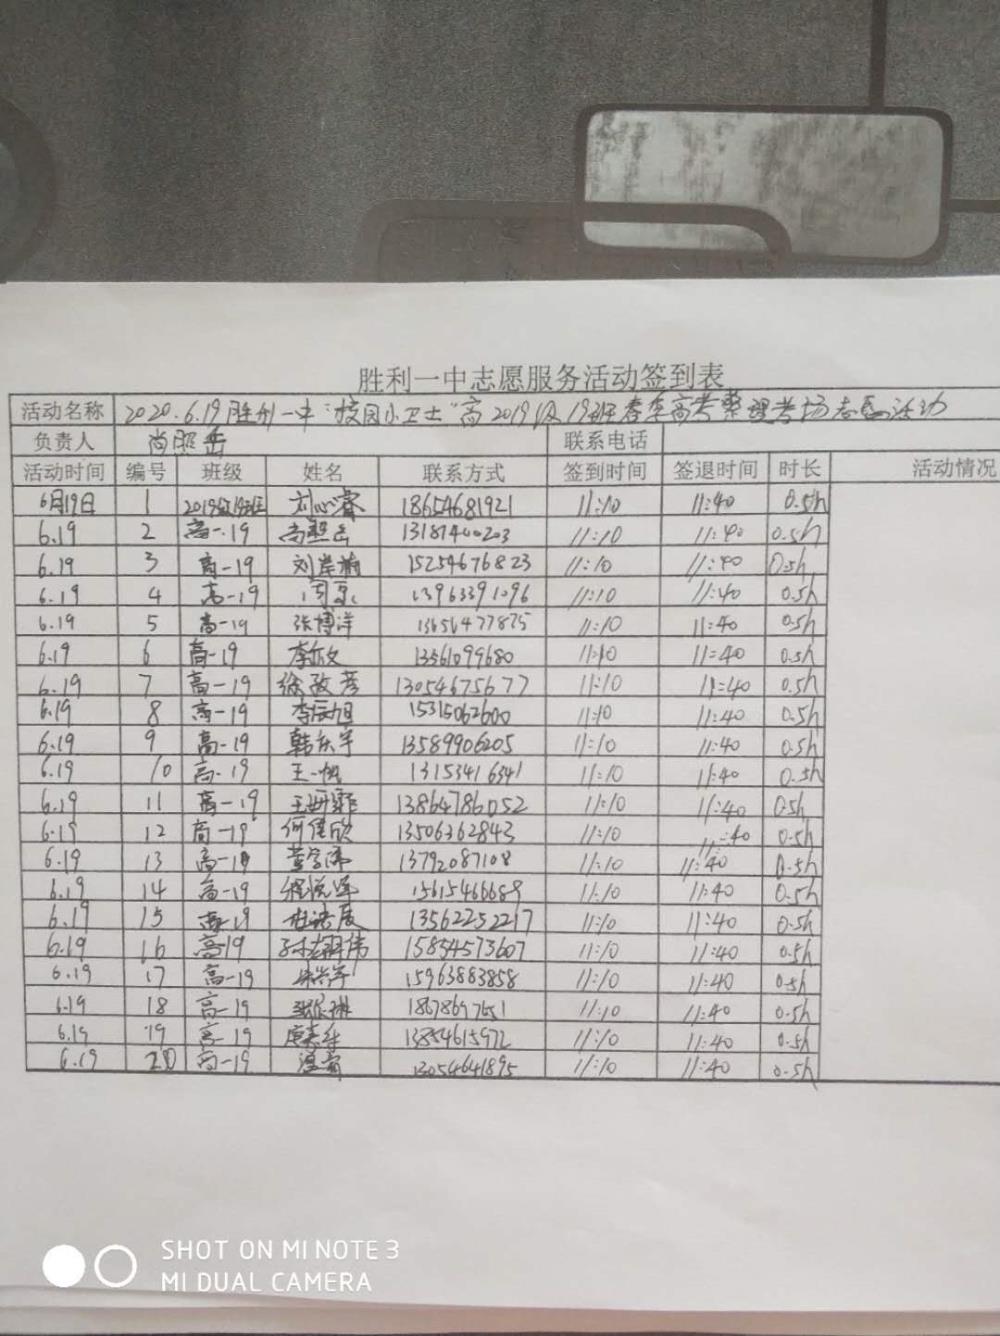 胜利一中志愿服务活动签到表
活动名称 2020.6.19胜利一中“校园小卫士”高2019级19班春季高考整理考场志愿活动
负责人 尚照岳 联系电话
活动时间 编号 班级 姓名 联系方式 签到时间 签退时间 时长 活动情况
6月19日 1 2019级19班 刘心睿 18654681921 11:10 11:40 0.5h
6.19 2 高一.19 尚照岳 13181400203 11:10 11:40 0.5h
6.19 3 高一19 刘岸 15254676823 11:10 11:40 0.5h
6.19 4 高一19 13963391096 11:10 11:40 0.5h
6.19 5 高一19 张博洋 13656477875 11:10 11:40 0.5h
6.19 6 高一19 李欣文 13561099680 11:10 11:40 0.5h
6.19 7 高一19 徐敬彦 13054675677 11:10 11:40 0.5h
6.19 8 高一19 李辰旭 15315062600 11:10 11:40 0.5h
6.19 9 高一19 韩东宇 13589906205 11:10 11:40 0.5h
6.19 10 高一.19 王一帆 13153416341 11:10 11:40 0.5h
6.19 11 高一19 王雨霏 13864786052 11:10 11:40 0.5h
6.19 12 高一19 何佳欣 13506362843 11:10 11:40 0.5h
6.19 13 高一19 董学 13792087108 11:10 11:40 0.5h
6.19 14 高一19 程悦 15615466689 11:10 11:40 0.5h
6.19 15 高一19 杜诺辰 13562252217 11:10 11:40 0.5h
6.19 16 高19 15854573607 11:10 11:40 0.5h
6.19 17 高一19 15963883858 11:10 11:40 0.5h
6.19 18 高一19 11:10 11:40 0.5h
6.19 19 高一19 13854615972 11:10 11:40 0.5h
6.19 20 高一19 13054641895 11:10 11:40 0.5h
SHOT ON MI NOTE 3
MI DUAL CAMERA